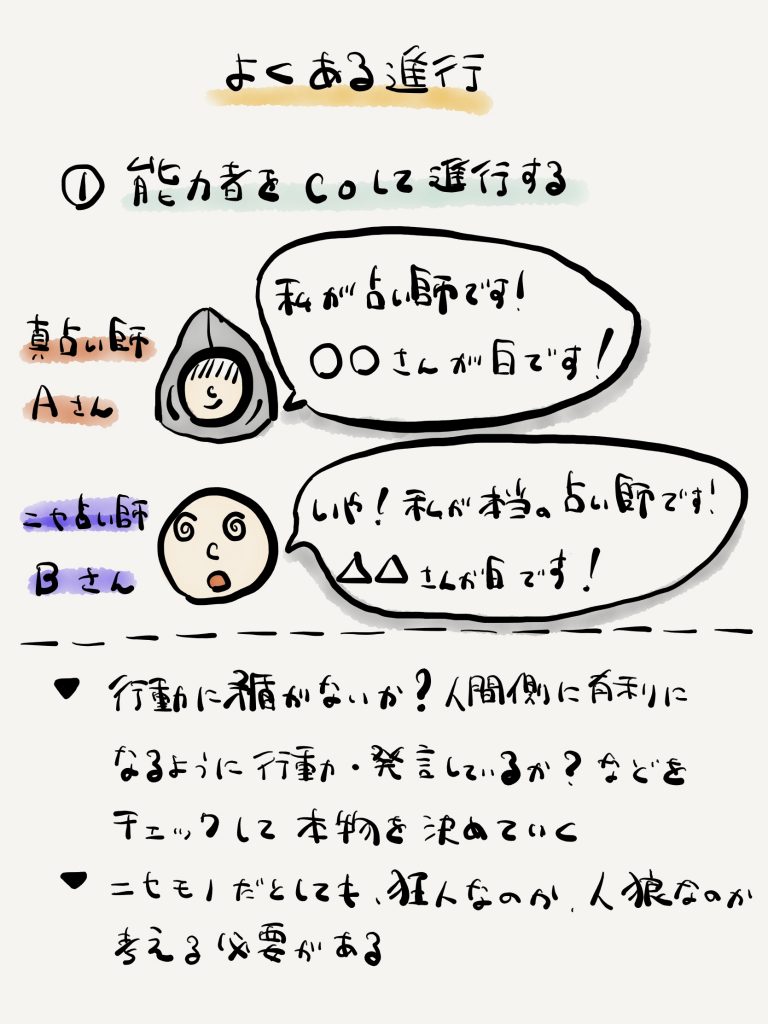 よくある進行
① 能力者をCOして進行する
私が占い師です!
○○さんが白です!
真占い師
Aさん
いや!私が本当の占い師です!
△△さんが白です!
ニセ占い師
Bさん
▼ 行動に矛盾がないか?人間側に有利に
なるように行動・発言しているか?などを
チェックして本物を決めていく
▼ ニセモノだとしても、狂人なのか、人狼なのか
考える必要がある